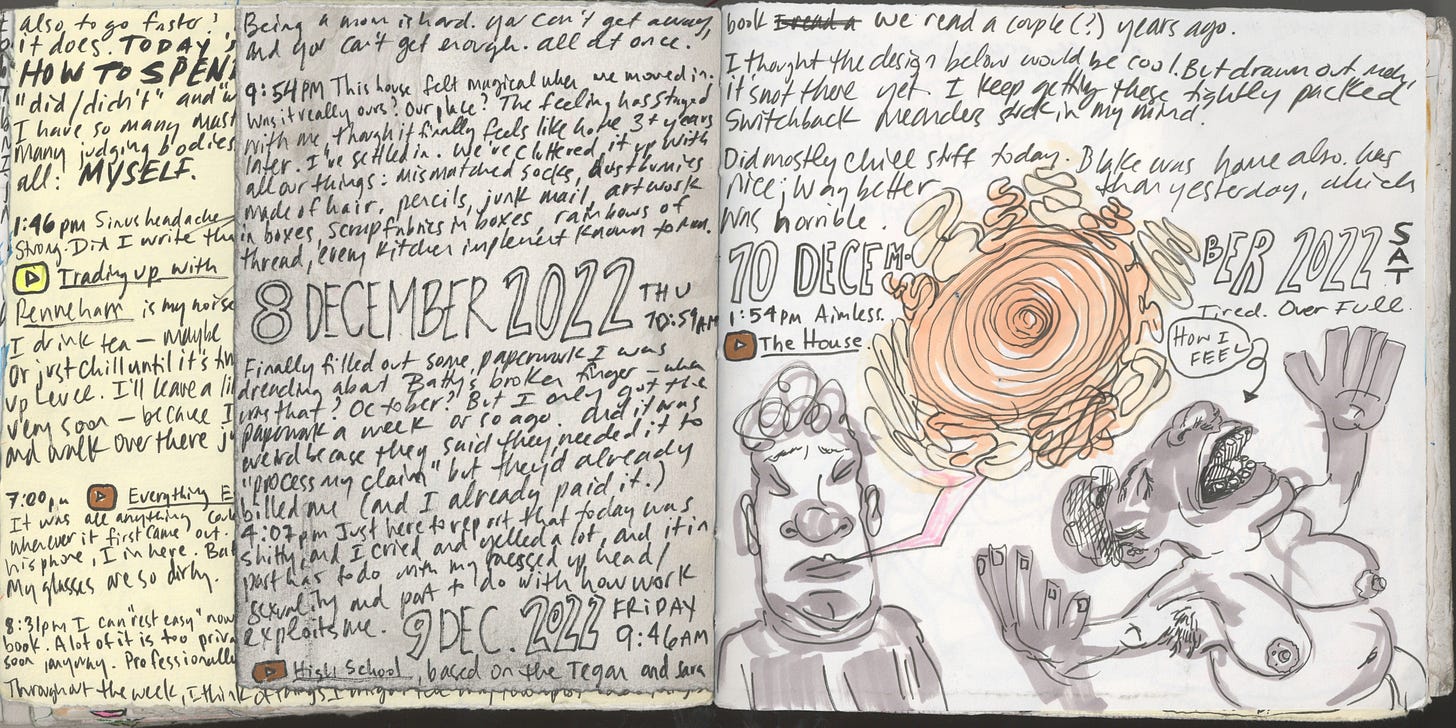 also to go faster?
it does. TODAY'S
HOW TO SPEN
"did/didn't" and "w
I have so many mast
many judging bodies
all: MYSELF.
1:46pm Sinus headache
Strong. Did I write the
Trading up with
Penneham is my noise
I drink tea — maybe
Or just chill until it's
up level. I'll leave a
very soon — because I
and walk over there
7:00pm Everything E
It was all anything
whenever it first came out.
his phone, I in here.
My glasses are so dirty.
8:31pm I can "rest easy" now
book. A lot of it is too priva
soon anyway. Professionally
Throughout the week, I think of things I
Being a mom is hard. You can't get away,
and you can't get enough. all at once.
9:54PM This house felt magical when we moved in.
Was it really ours? Our place? The feeling has stayed
with me, though it finally feels like home 3+ years
later. I've settled in. We've cluttered it up with
all our things: mismatched socks, dust bunnies
made of hair, pencils, junk mail, artwork
in boxes, scrap fabrics in boxes, rainbows of
thread, every kitchen implement known to man.
8 DECEMBER 2022 THU
10:59AM
Finally filled out some paperwork I was
dreading about Batty's broken finger — when
was that? October? But I only got the
paperwork a week or so ago. And it was
weird because they said they needed it to
"process my claim" but they'd already
billed me (and I already paid it.)
4:07pm Just here to report that today was
shitty, and I cried and yelled a lot, and it in
part has to do with my messed up head/
sexuality and part to do with how work
exploits me. 9 DEC. 2022 FRIDAY
9:46AM
High School, based on the Tegan and Sara
book I read a we read a couple(?) years ago.
I thought the design below would be cool. But drawn out, nah,
it's not there yet. I keep getting these tightly packed
switchback meanders stuck in my mind.
Did mostly chill stuff today. Blake was home also. Was
nice; way better than yesterday, which
was horrible.
10 DECEMBER 2022 SAT
1:54pm Aimless. Tired. Over Full.
The House.
HOW I
FEEL